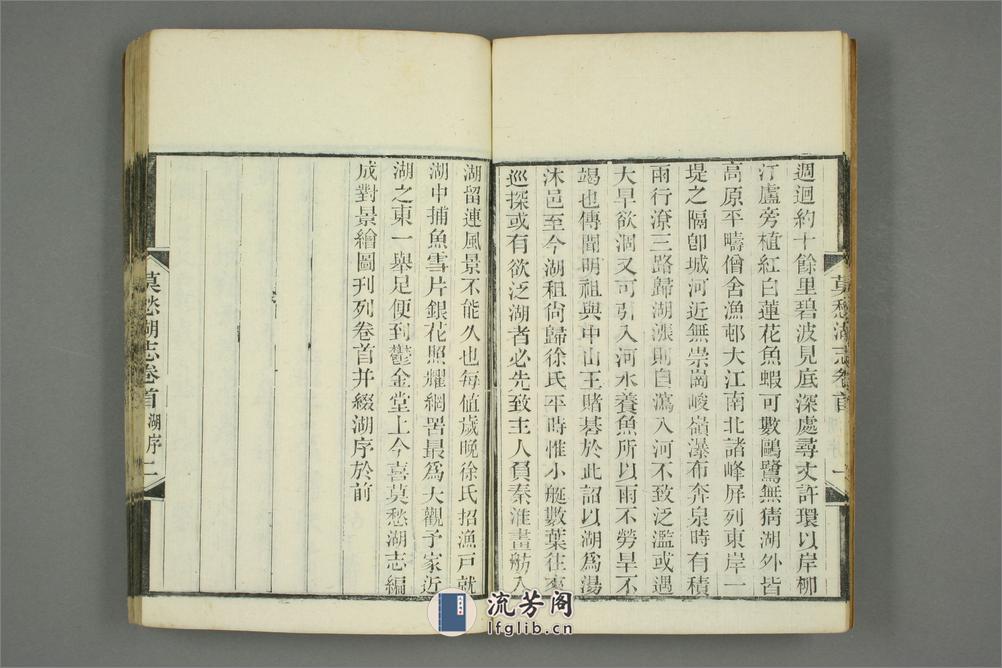 週迴約十餘里碧波見底深處尋丈許環以岸柳
汀蘆旁植紅白蓮花魚蝦可數鷗鷺無猜湖外皆
高原平疇僧舍漁邨大江南北諸峰屏列東岸一
堤之隔卽城河近無崇崗峻嶺瀑布奔泉時有積
雨行潦三路歸湖漲則自瀉入河不致泛濫或遇
大旱欲涸又可引入河水養魚所以雨不勞旱不
竭也傳聞明祖與中山王賭棊於此詔以湖爲湯
沐邑至今湖租尙歸徐氏平時惟小艇數葉往來
巡探或有欲泛湖者必先致主人員秦淮畫舫入
莫愁湖志卷首
一
湖留連風景不能久也每値歲晚徐氏招漁戸就
湖中捕魚雪片銀花照耀網罟最爲大觀予家近
湖之東一舉足便到鬱金堂上今喜莫愁湖志編
成對景繪圖刊列卷首并綴湖序於前
莫愁湖志卷首 湖序 二
流芳阁
lfglib.cn